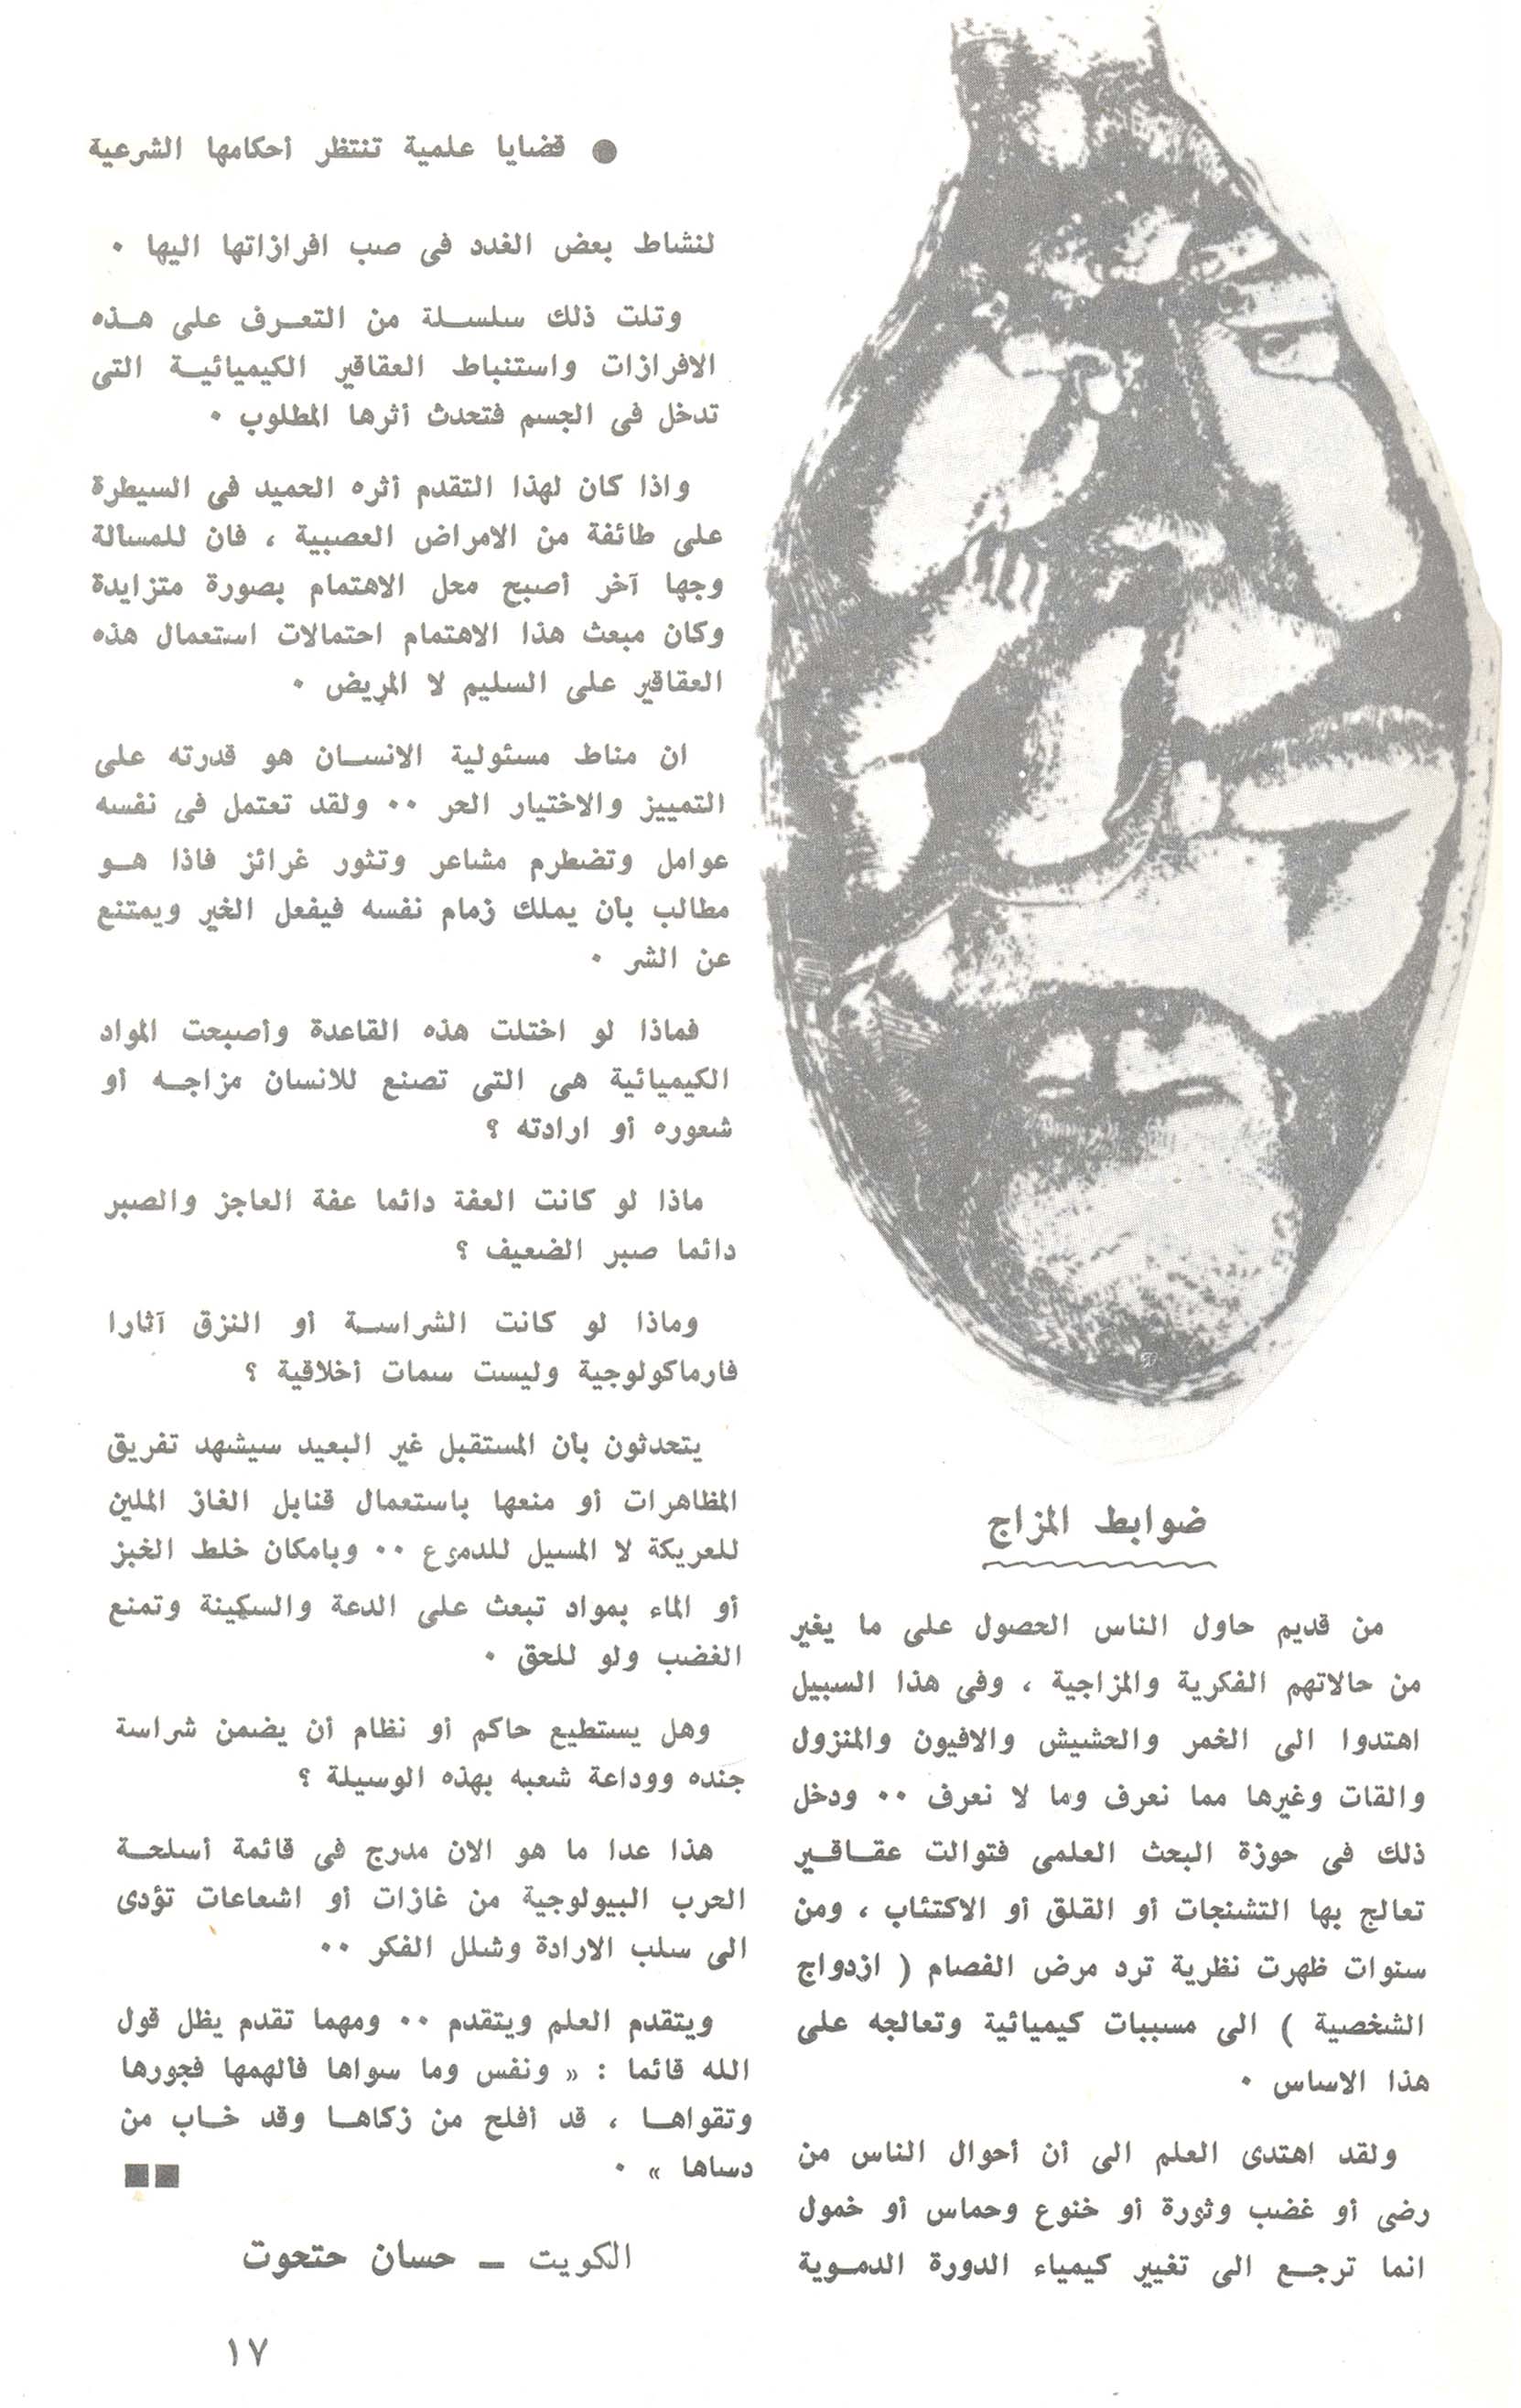 ● قضايا علمية تنتظر أحكامها الشرعية
ضوابط المزاج
من قديم حاول الناس الحصول على ما يغير
من حالاتهم الفكرية والمزاجية ، وفى هذا السبيل
اهتدوا الى الخمر والحشيش والافيون والمنزول
والقات وغيرها مما نعرف وما لا نعرف ٠٠ ودخل
ذلك فى حوزة البحث العلمى فتوالت عقـاقـير
تعالج بها التشنجات أو القلق أو الاكتئاب ، ومن
سنوات ظهرت نظرية ترد مرض الفصام ( ازدواج
الشخصية ) الى مسببات كيميائية وتعالجه على
هذا الاساس ٠
ولقد اهتدى العلم الى أن أحوال الناس من
رضى أو غضب وثورة أو خنوع وحماس أو خمول
انما ترجـع الى تغيير كيمياء الدورة الدمـوية
لنشاط بعض الغدد فى صب افرازاتها اليها ٠
وتلت ذلك سلسـلة من التعـرف على هـذه
الافرازات واستنباط العقاقير الكيميائيـة التى
تدخل فى الجسم فتحدث أثرها المطلوب ٠
واذا كان لهذا التقدم أثره الحميد فى السيطرة
على طائفة من الامراض العصبية ، فان للمسألة
وجها آخر أصبح محل الاهتمام بصورة متزايدة
وكان مبعث هذا الاهتمام احتمالات استعمال هذه
العقاقير على السليم لا المريض ٠
ان مناط مسئولية الانسـان هو قدرته على
التمييز والاختيار الحر ٠٠ ولقد تعتمل فى نفسه
عوامل وتضطرم مشاعر وتثور غرائز فاذا هـو
مطالب بأن يملك زمام نفسه فيفعل الخير ويمتنع
عن الشر ٠
فماذا لو اختلت هذه القاعدة وأصبحت المواد
الكيميائية هى التى تصنع للانسان مزاجـه أو
شعوره أو ارادته ؟
ماذا لو كانت العفة دائما عفة العاجز والصبر
دائما صبر الضعيف ؟
وماذا لو كانت الشراسـة أو النزق آثارا
فارماكولوجية وليست سمات أخلاقية ؟
يتحدثون بأن المستقبل غير البعيد سيشهد تفريق
المظاهرات أو منعها باستعمال قنابل الغاز الملين
للعريكة لا المسيل للدموع ٠٠ وبامكان خلط الخبز
أو الماء بمواد تبعث على الدعة والسكينة وتمنع
الغضب ولو للحق ٠
وهل يستطيع حاكم أو نظام أن يضمن شراسة
جنده ووداعة شعبه بهذه الوسيلة ؟
هذا عدا ما هو الان مدرج فى قائمة أسلحـة
الحرب البيولوجية من غازات أو اشعاعات تؤدى
الى سلب الارادة وشلل الفكر ٠٠
ويتقدم العلم ويتقدم ٠٠ ومهما تقدم يظل قول
الله قائما : « ونفس وما سواها فألهمها فجورها
وتقواهـا ، قد أفلح من زكاهـا وقد خـاب من
دساها » ٠
الكويت ـ حسان حتحوت
١٧